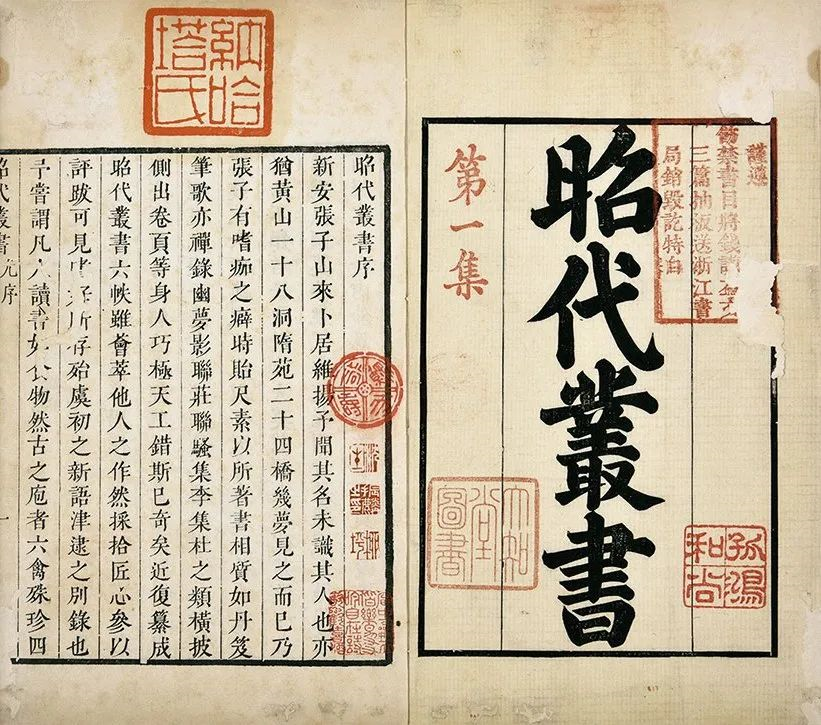 謹遵
飭禁書目將錢
三篇抽版送浙江書
局銷毀訖特白
昭代叢書
第一集
孤鴻和尚
堂圖書
納哈塔氏
昭代叢書序
新安張子山來卜居維揚予聞其名未識其人也亦
猶黃山一十八洞隋苑二十四橋幾夢見之而已乃
張子有嗜痂之癖時貽尺素以所著書相質如丹笈
筆歌亦禪錄幽夢影聯莊聯騷集李集杜之類橫披
側出卷頁等身人巧極天工錯斯已奇矣近復纂成
昭代叢書六帙雖薈萃他人之作然採拾匠心參以
評跋可見所存殆虞初之新語津逮之別錄也
予嘗謂凡人讀書如食物然古之庖者六禽殊珍四
昭代叢書 尤序 一